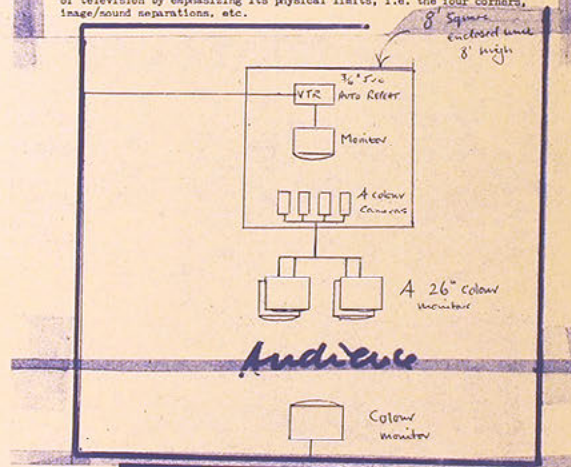 of television by emphasizing its physical limits, i.e. the four corners,
image/sound separations, etc.
8' Square
enclosed unit
8' high
VTR
AUTO REPEAT
Monitor
4 colour
Cameras
4 26" colour
monitor
Audience
Colour
monitor